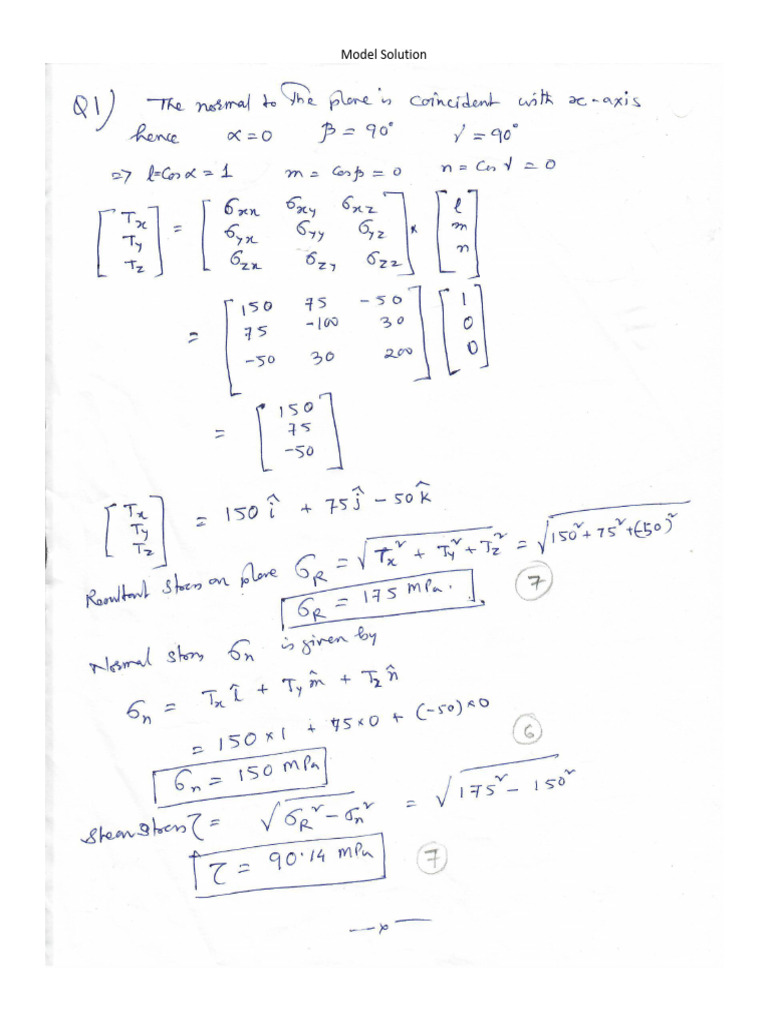 Model Solution
Q1) The normal to the plane is coincident with x-axis
hence α = 0 β = 90° γ = 90°
⇒ l = Cos α = 1 m = Cos β = 0 n = Cos γ = 0
[Tx Ty Tz] = [σxx σxy σxz; σyx σyy σyz; σzx σzy σzz] * [l m n]
= [150 75 -50; 75 -100 30; -50 30 200] [1 0 0]
= [150 75 -50]
[Tx Ty Tz] = 150 î + 75 ĵ - 50 k̂
Resultant Stress on plane σR = √(Tx² + Ty² + Tz²) = √(150² + 75² + (-50)²)
σR = 175 MPa. 7
Normal stress σn is given by
σn = Tx l̂ + Ty m̂ + Tz n̂
= 150 × 1 + 75 × 0 + (-50) × 0
σn = 150 MPa 6
Shear stress τ = √(σR² - σn²) = √(175² - 150²)
τ = 90.14 MPa 7
—x—